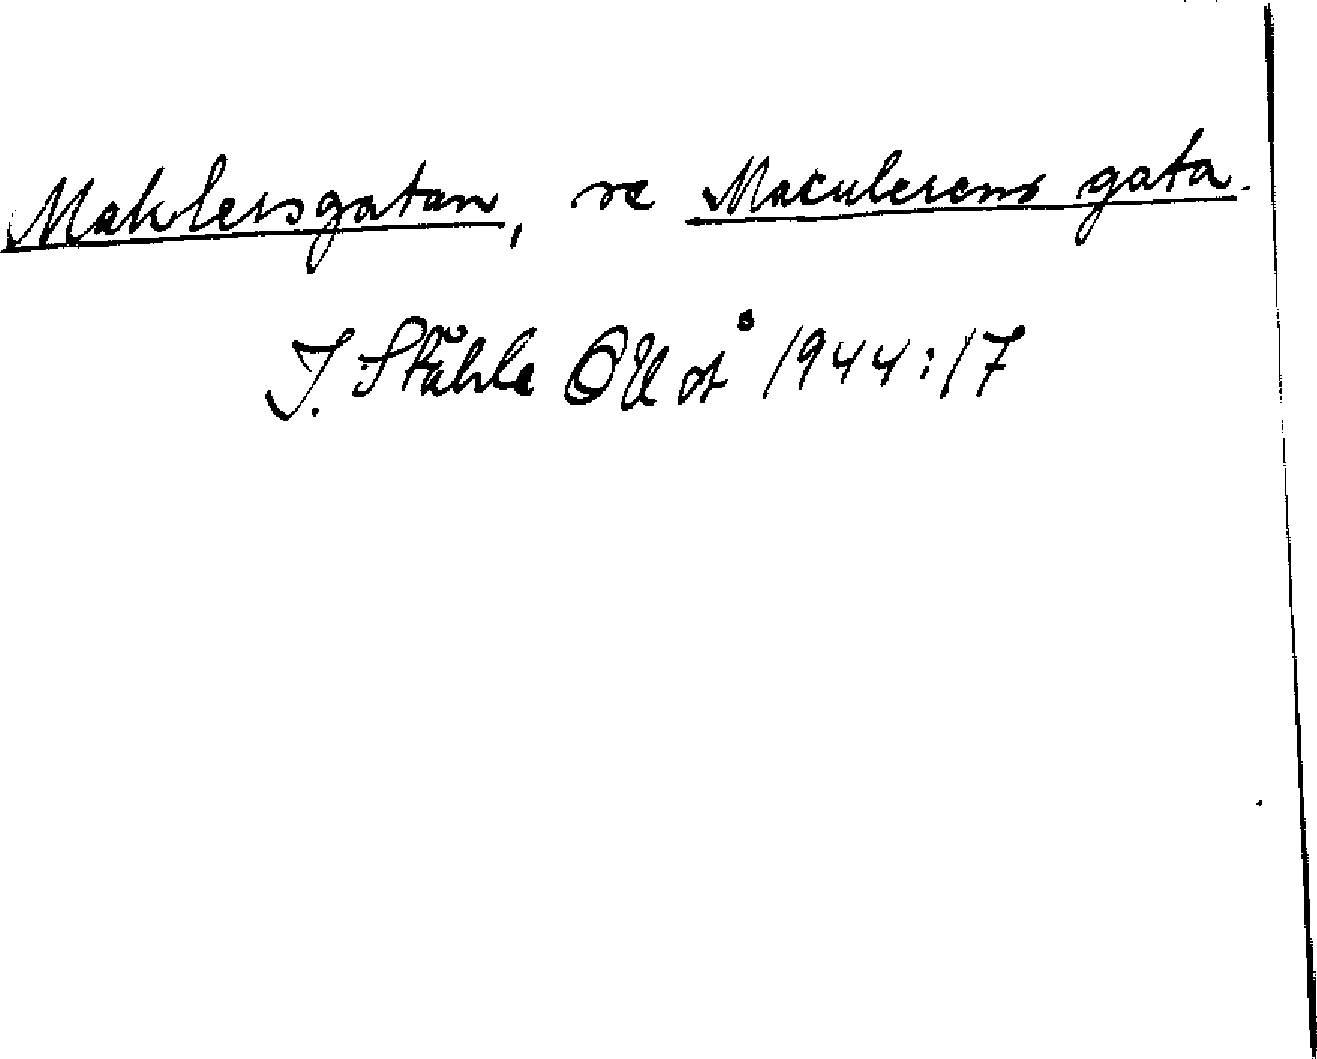 Maklersgatan, se Maculerens gata.
I. Ståhle OUÅ 1944:17